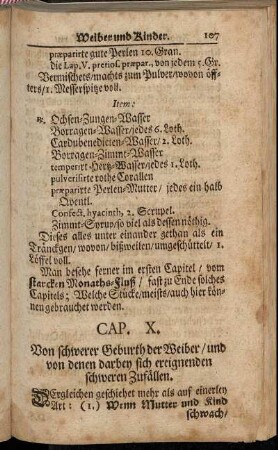 Weiber und Kinder. 107
præparirte gute Perlen 10. Gran.
die Lap. V. pretios. præpar., von jedem 5. Gr.
Vermischets/machts zum Pulver/wovon öff-
ters/1. Messerspitze voll.
Item:
℞. Ochsen-Zungen-Wasser
Borragen-Wasser/jedes 6. Loth.
Cardubenedicten-Wasser/2. Loth.
Borragen-Zimmt-Wasser
temperirt-Hertz-Wasser/jedes 1. Loth.
pulverisirte rothe Corallen
præparirte Perlen-Mutter/ jedes ein halb
Qventl.
Confect. hyacinth, 2. Scrupel.
Zimmt-Syrup/so viel als dessen nöthig.
Dieses alles unter einander gethan als ein
Träncklgen, wovon/ bißweilen/umgeschüttelt/ 1.
Löffel voll.
Man besehe ferner im ersten Capitel/ vom
starcken Monaths-Fluß/ fast zu Ende solches
Capitels; Welche Stücke/meists/auch hier kön-
nen gebrauchet werden.
CAP. X.
Von schwerer Geburth der Weiber/und
von denen darbey sich ereignenden
schweren Zufällen.
DErgleichen geschiehet mehr als auf einerley
Art: (1.) Wenn Mutter und Kind
schwach/